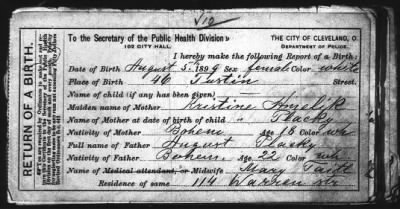 V10
To the Secretary of the Public Health Division
102 CITY HALL.
THE CITY OF CLEVELAND, O.
DEPARTMENT OF POLICE.
I hereby make the following Report of a Birth:
Date of Birth August 5. 1899 Sex female Color white
Place of Birth 46 Tustin Street.
Name of child (if any has been given)
Maiden name of Mother Kristine
Name of Mother at date of birth of child " Placky
Nativity of Mother Bohem age 16 Color wh
Full name of Father August Placky
Nativity of Father Bohem age 22 Color wh
Name of Medical attendant, or Midwife Mary
Residence of same 114 Warren str
RETURN OF A BIRTH.